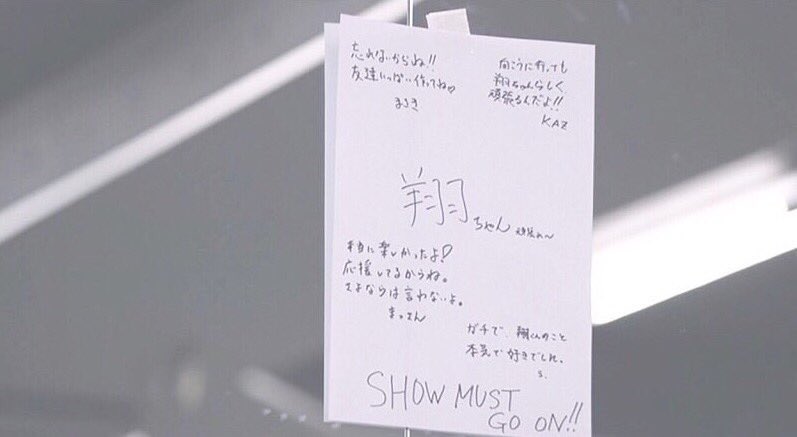 忘れないからね!!
友達いっぱい作ってね♡
まさき
向こうに行っても
翔ちゃんらしく
頑張るんだよ!!
KAZ
翔ちゃん 頑張れ〜
本当に楽しかったよ!
応援してるからね。
さよならは言わないよ。
まつさん
ガチで、翔くんのこと
本気で好きでした。
S.
SHOW MUST
GO ON!!